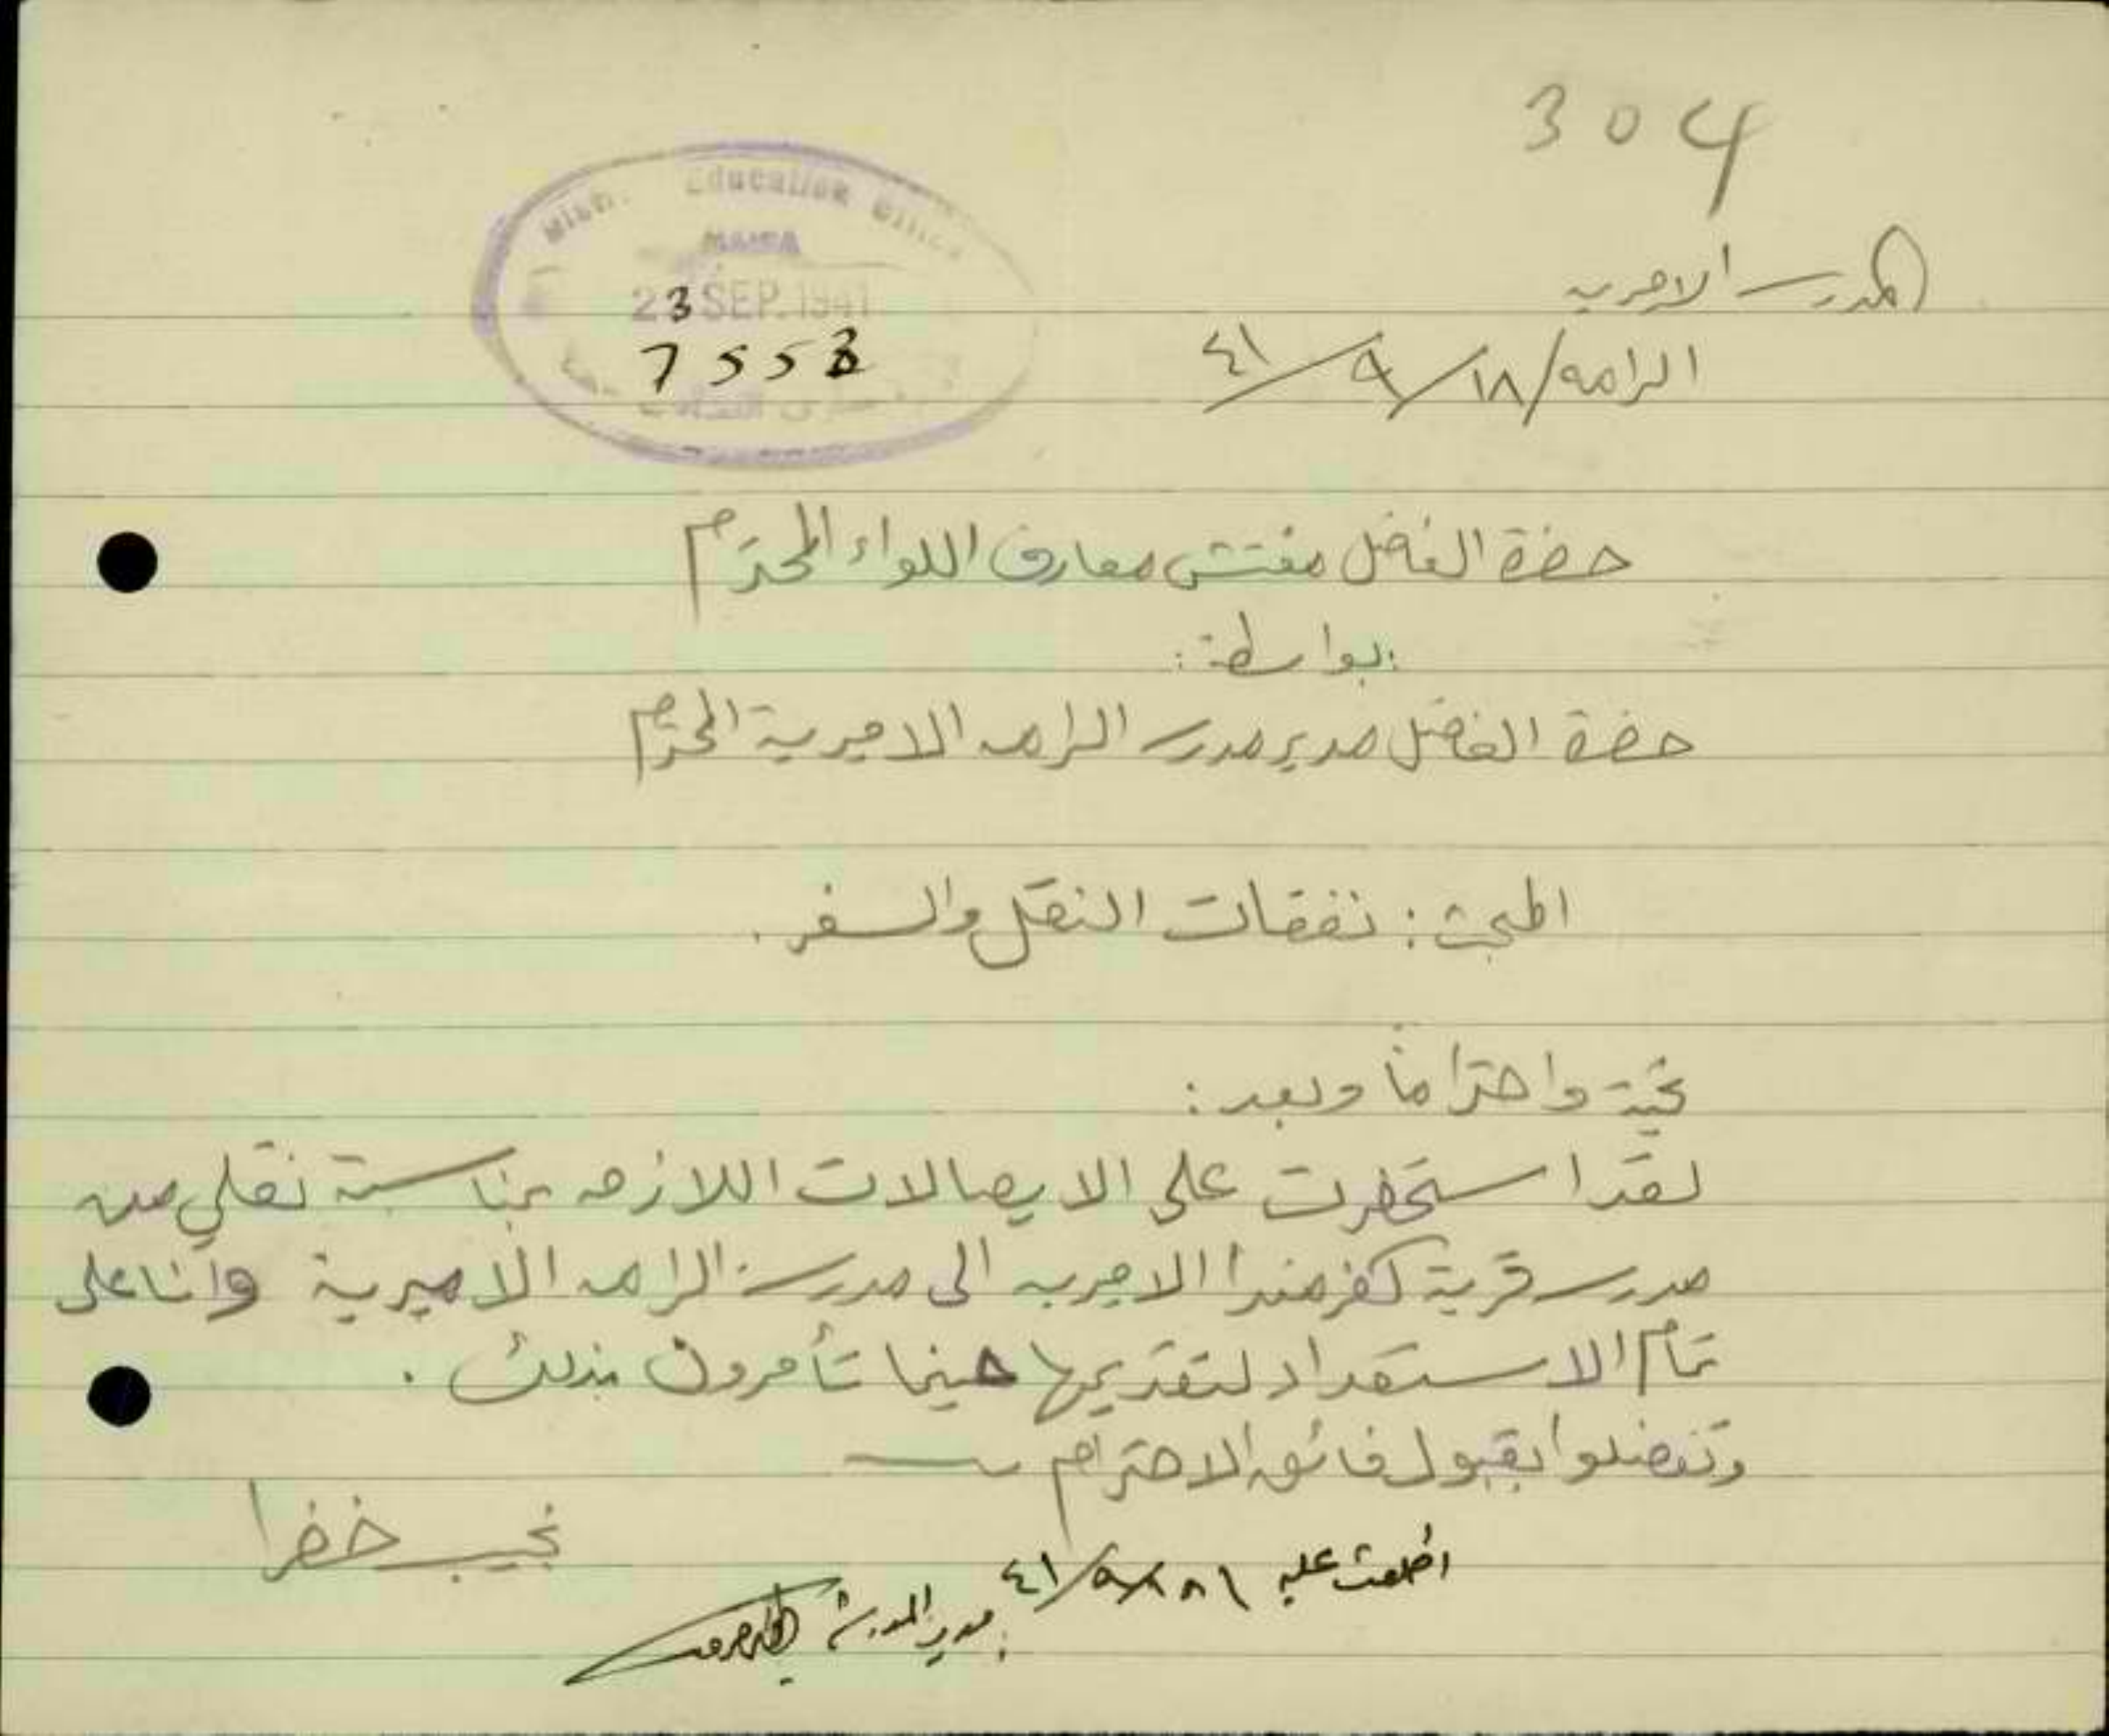 304
Dist. Education Office
23 SEP. 1941
7553
المدرسة الاميرية
الرامه ١٨/٩/٤١
حضرة الفاضل مفتش معارف اللواء المحترم
بواسطة:
حضرة الفاضل مدير مدرسة الرامه الاميرية المحترم
المبحث: نفقات النقل والسفر.
تحية واحتراماً وبعد:
لقد استحضرت على الايصالات اللازمه بمناسبة نقلي من
مدرسة قرية كفرمندا الاميريه الى مدرسة الرامه الاميرية وانا على
تمام الاستعداد لتقديمها حينما تأمرون بذلك.
وتفضلوا بقبول فائق الاحترام
نجيب خضرا
اطلعت عليه ١٨/٩/٤١
مدير المدرسة